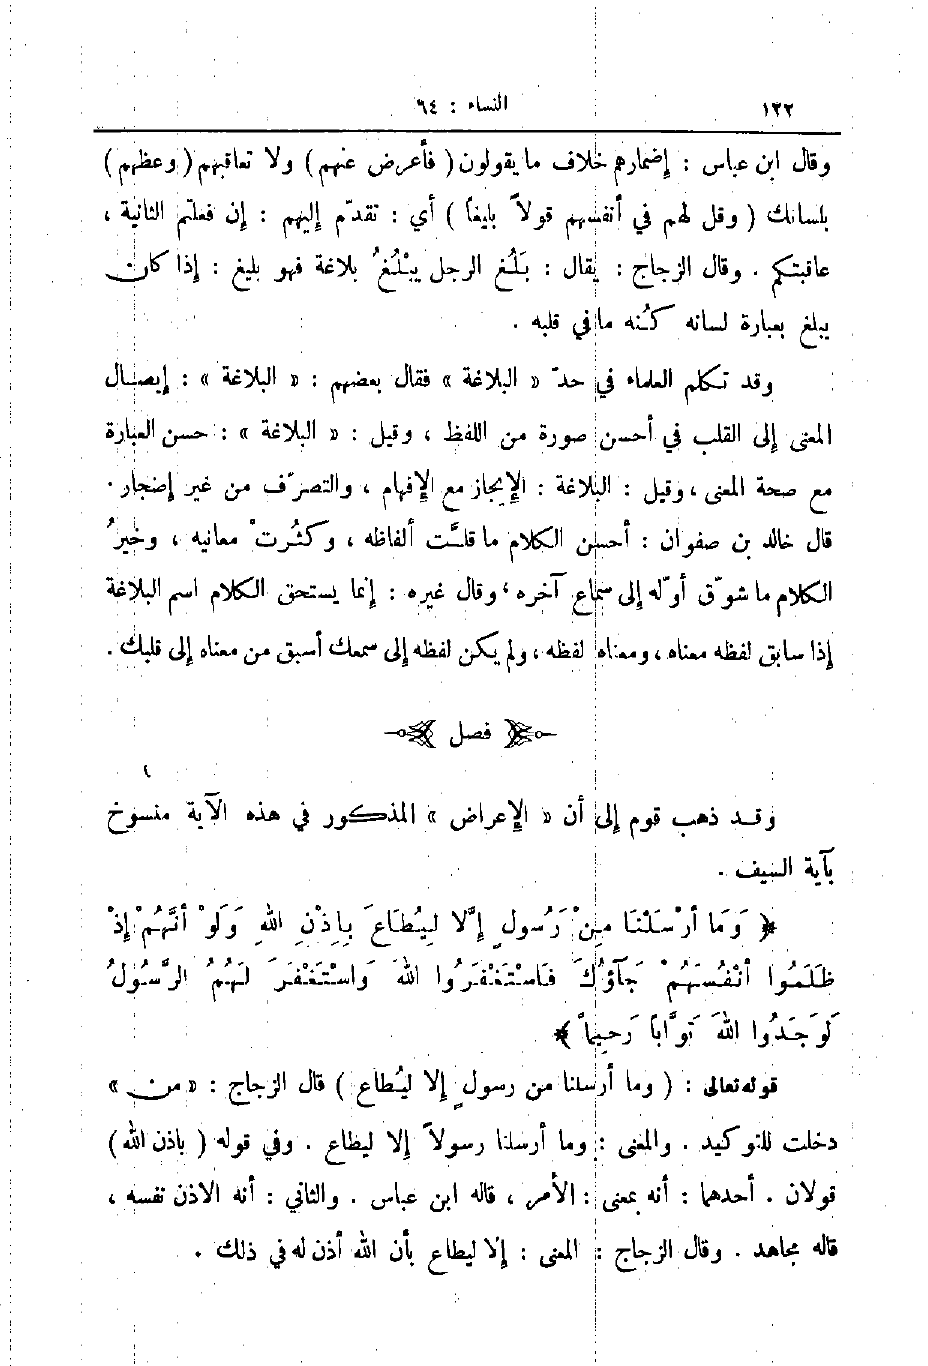 ١٢٢ النساء : ٦٤
وقال ابن عباس : إضمارهم خلاف ما يقولون ( فأعرض عنهم ) ولا تعاقبهم ( وعظهم )
بلسانك ( وقل لهم في أنفسهم قولاً بليغاً ) أي : تقدّم إليهم : إن فعلتم الثانية ،
عاقبتكم . وقال الزجاج : يقال : بَلُغ الرجل يبْلُغُ بلاغة فهو بليغ : إذا كان
يبلغ بعبارة لسانه كُنه ما في قلبه .
وقد تكلم العلماء في حدّ « البلاغة » فقال بعضهم : « البلاغة » : إيصال
المعنى إلى القلب في أحسن صورة من اللفظ ، وقيل : « البلاغة » : حسن العبارة
مع صحة المعنى ، وقيل : البلاغة : الإيجاز مع الإفهام ، والتصرّف من غير إضجار .
قال خالد بن صفوان : أحسن الكلام ما قلَّت ألفاظه ، وكثُرتْ معانيه ، وخيرُ
الكلام ما شوّق أوّله إلى سماع آخره ، وقال غيره : إنما يستحق الكلام اسم البلاغة
إذا سابق لفظه معناه ، ومعناه لفظه ، ولم يكن لفظه إلى سمعك أسبق من معناه إلى قلبك .
فصل
وقد ذهب قوم إلى أن « الإعراض » المذكور في هذه الآية منسوخ
بآية السيف .
﴿ وَمَا أرْسَلْنَا مِنْ رَسُولٍ إلَّا لِيُطَاعَ بِإذْنِ اللهِ وَلَوْ أنَّهُمْ إذْ
ظَلَمُوا أنْفُسَهُمْ جَآؤُكَ فَاسْتَغْفَرُوا اللهَ وَاسْتَغْفَرَ لَهُمُ الرَّسُولُ
لَوَجَدُوا اللهَ تَوَّاباً رَحِيماً ﴾
قوله تعالى : ( وما أرسلنا من رسولٍ إلا ليُطاع ) قال الزجاج : « من »
دخلت للتوكيد . والمعنى : وما أرسلنا رسولاً إلا ليطاع . وفي قوله ( باذن الله )
قولان . أحدهما : أنه بمعنى : الأمر ، قاله ابن عباس . والثاني : أنه الاذن نفسه ،
قاله مجاهد . وقال الزجاج : المعنى : إلا ليطاع بأن الله أذن له في ذلك .